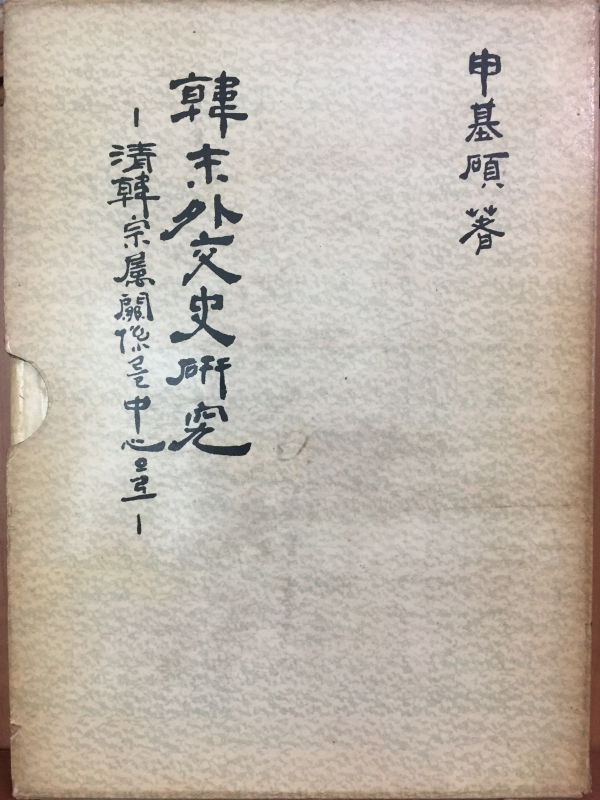 申基碩 著
韓末外交史硏究
-淸韓宗属關係를 中心으로-